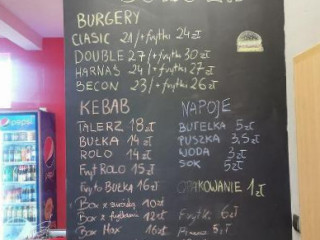 BURGERY
CLASIC 21/+frytki 24 zł
DOUBLE 27/+frytki 30 zł
HARNAŚ 24/+frytki 27 zł
BECON 23/+frytki 26 zł
KEBAB
TALERZ 18 zł
BUŁKA 14 zł
ROLO 14 zł
Fryt ROLO 15 zł
Fryto BUŁKA 16 zł
Box z surówką 10 zł
Box z frytkami 12 zł
Box Max 16 zł
NAPOJE
BUTELKA 5 zł
PUSZKA 3,5 zł
WODA 3 zł
SOK 5 zł
OPAKOWANIE 1 zł
Frytki 6 zł
5 zł
pepsi